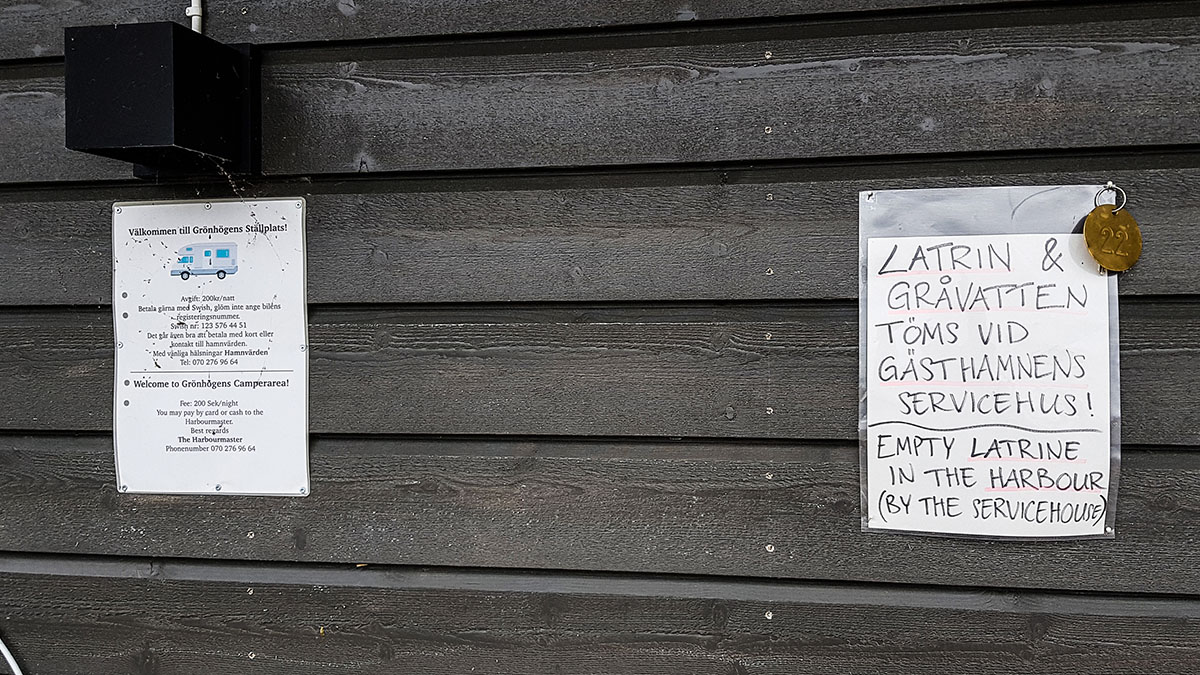 Välkommen till Grönhögens Ställplats!
Avgift: 200kr/natt
Betala gärna med Swish, glöm inte ange bilens
registeringsnummer.
Swish nr: 123 576 44 51
Det går även bra att betala med kort eller
kontakt till hamnvärden.
Med vänliga hälsningar Hamnvärden
Tel: 070 276 96 64
Welcome to Grönhögens Camperarea!
Fee: 200 Sek/night
You may pay by card or cash to the
Harbourmaster.
Best regards
The Harbourmaster
Phonenumber 070 276 96 64
LATRIN &
GRÅVATTEN
TÖMS VID
GÄSTHAMNENS
SERVICEHUS!
EMPTY LATRINE
IN THE HARBOUR
(BY THE SERVICEHOUSE)
22